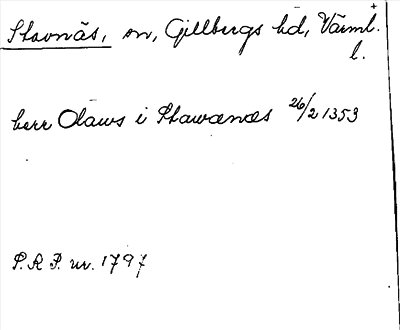 Stavnäs, sn, Gillbergs hd, Värml.
l.
herr Olaws i Stawænæs 26/2 1353
P.R.P. nr. 1797